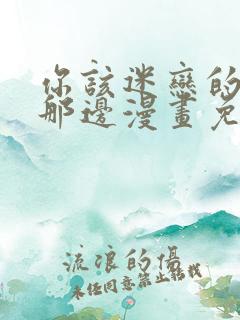 你該迷戀的
那邊漫畫免
流浪的傷
未任同意禁止轉載